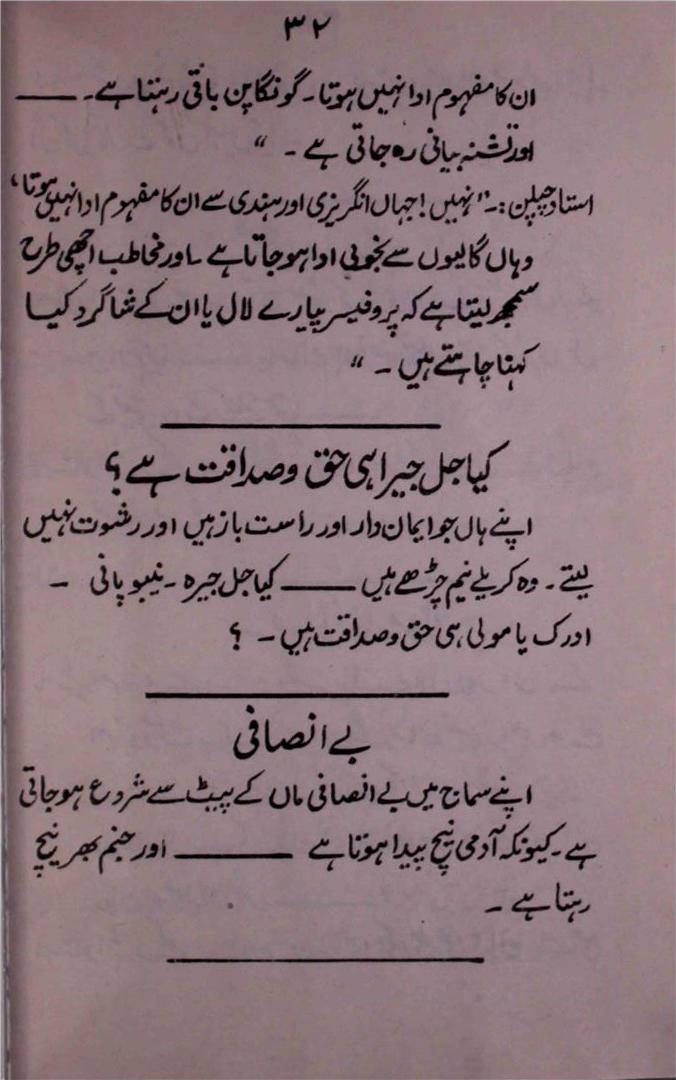 ۳۲
ان کا مفہوم ادا نہیں ہوتا۔ گونگا پن باقی رہتا ہے۔ ——
اور تشنہ بیانی رہ جاتی ہے ۔ “
استاد چپلن:۔ ”نہیں! جہاں انگریزی اور ہندی سے ان کا مفہوم ادا نہیں ہوتا،
وہاں گالیوں سے بخوبی ادا ہو جاتا ہے ۔ اور مخاطب اچھی طرح
سمجھ لیتا ہے کہ پروفیسر پیارے لال یا ان کے شاگرد کیا
کہنا چاہتے ہیں ۔ “
کیا جل جیرا ہی حق و صداقت ہے؟
اپنے ہاں جو ایمان دار اور راست باز ہیں اور رشوت نہیں
لیتے۔ وہ کریلے نیم چڑھے ہیں —— کیا جل جیرہ ۔ نیبو پانی ۔
ادرک یا مولی ہی حق و صداقت ہیں ۔ ؟
بے انصافی
اپنے سماج میں بے انصافی ماں کے پیٹ سے شروع ہو جاتی
ہے۔ کیونکہ آدمی نیچ پیدا ہوتا ہے —— اور جنم بھر نیچ
رہتا ہے ۔